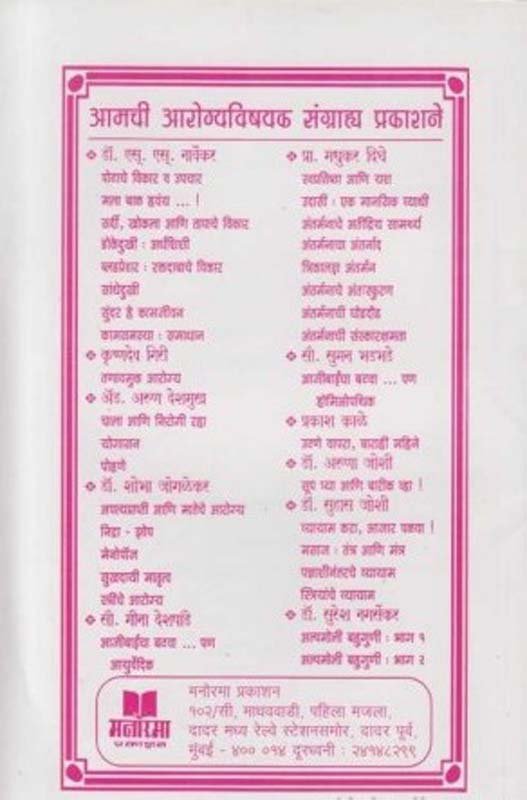 आमची आरोग्यविषयक संग्राह्य प्रकाशने
❖ डॉ. एस्. एस्. नार्वेकर
पोटाचे विकार व उपचार
मला बाळ हवंय ... !
सर्दी, खोकला आणि तापाचे विकार
डोकेदुखी : अर्धशिशी
ब्लडप्रेशर : रक्तदाबाचे विकार
सांधेदुखी
सुंदर हे कामजीवन
कामसमस्या : समाधान
❖ कृष्णदेव गिरी
तणावमुक्त आरोग्य
❖ ॲड. अरुण देशमुख
चाला आणि निरोगी रहा
योगासन
पोहणे
❖ डॉ. शोभा जोगळेकर
अपत्यप्राप्ती आणि मातेचे आरोग्य
निद्रा - झोप
मेनोपॉज
सुखदायी मातृत्व
स्त्रीचे आरोग्य
❖ सौ. गीता देशपांडे
आजीबाईंचा बटवा ... पण
आयुर्वेदिक
❖ प्रा. मधुकर दिघे
स्वप्रतिष्ठा आणि यश
उदासी : एक मानसिक व्याधी
अंतर्मनाचे अतींद्रिय सामर्थ्य
अंतर्मनाचा अंतर्नाद
त्रिकालज्ञ अंतर्मन
अंतर्मनाचे अंतःस्फुरण
अंतर्मनाची घोडदौड
अंतर्मनाची संस्कारक्षमता
❖ सौ. सुमन भडभडे
आजीबाईंचा बटवा ... पण
होमिओपॅथिक
❖ प्रकाश काळे
उटणे वापरा, बाराही महिने
❖ डॉ. अरुणा जोशी
सूप प्या आणि बारीक व्हा !
❖ डॉ. सुहास जोशी
व्यायाम करा, आजार पळवा !
मसाज : तंत्र आणि मंत्र
पन्नाशीनंतरचे व्यायाम
स्त्रियांचे व्यायाम
❖ डॉ. सुरेश नगर्सेकर
अल्पमोली बहुगुणी : भाग १
अल्पमोली बहुगुणी : भाग २
मनोरमा
प्रकाशन
मनोरमा प्रकाशन
१०२/सी, माधववाडी, पहिला मजला,
दादर मध्य रेल्वे स्टेशनसमोर, दादर पूर्व,
मुंबई - ४०० ०१४ दूरध्वनी : २४१४८२९९